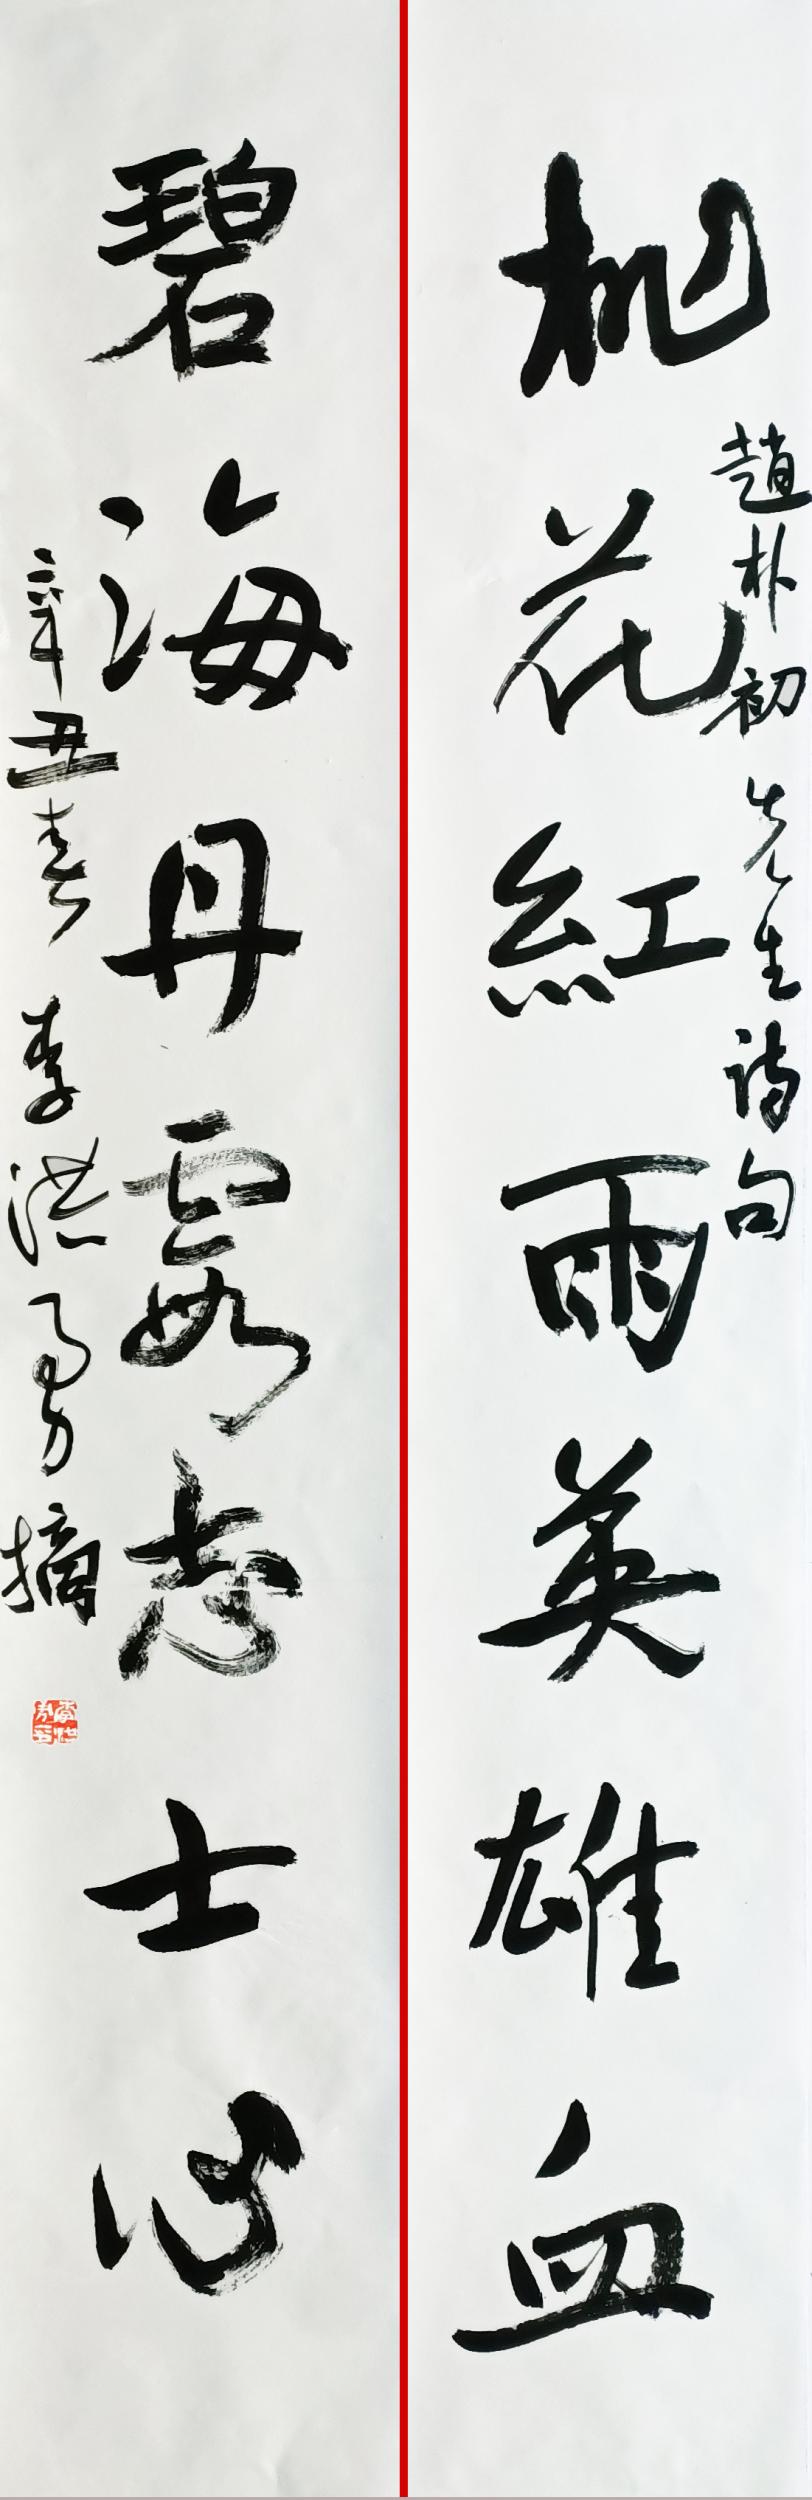 桃花紅雨英雄血
趙朴初先生詩句
碧海丹霞志士心
辛丑春李洪勇摘